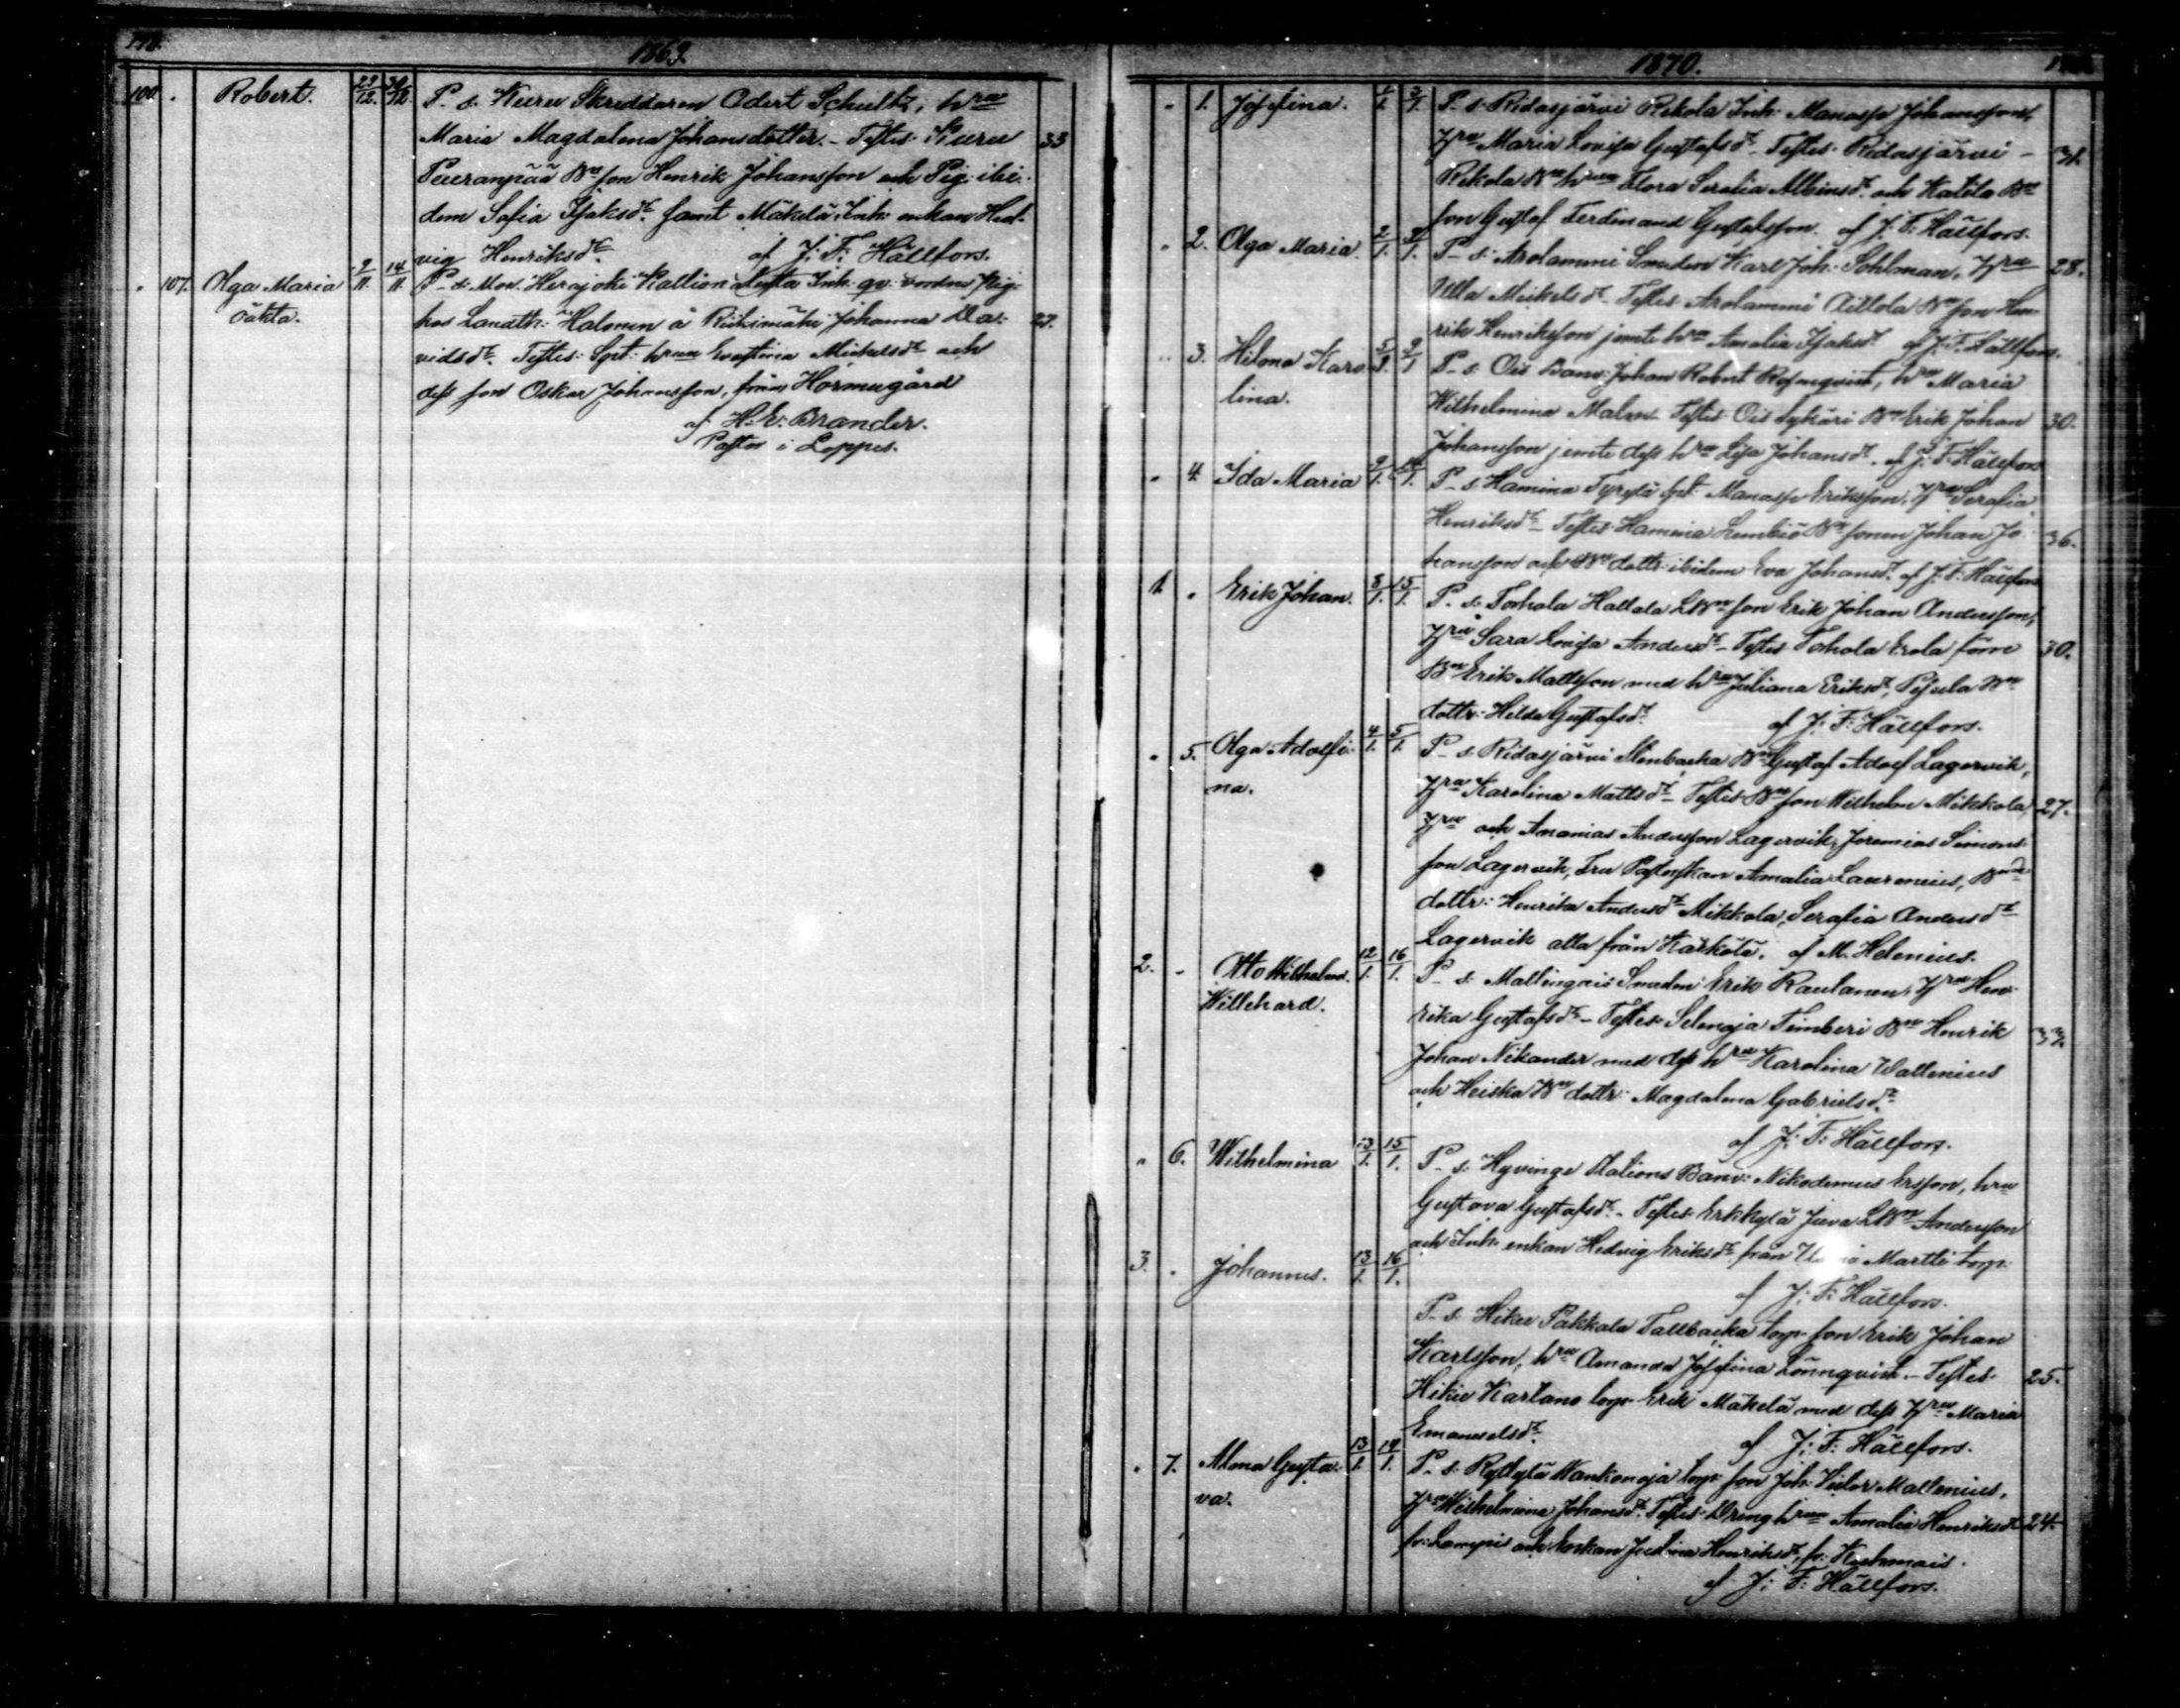 1869.
100. Robert. 29/12. 30/12 P. s. Kuru Skreddaren Odert Schultz, hru
Maria Magdalena Johansdotter. - Testes: Kuru 33
Peuranpää Bde son Henrik Johansson och Pig. ibi-
dem Sofia Isaksdr. samt Mäkelä Inh. enkan Hed-
vig Henriksdr. af J. F. Hällfors.
107. Olga Maria 9/11. 14/11. P. s. Mom. Herajoki Kallion Inh. qv. vorden Pig.
oäkta. hos Landth: Halonen å Riihimäki Johanna Da- 27.
vidsdr. Testes: Spt. hrun Ernstina Michelsdr och
dess son Oskar Johansson, från Hormugård
af H. E. Brander.
Pastor i Loppis.
1870.
1. Josefina. 1/1. 2/1. P. s. Ridasjärvi Rekola Inh. Manasse Johansson,
hru Maria Lovisa Gustafsdr. - Testes: Ridasjärvi 31.
Rekola Bde hrun Flora Serafia Albinsdr. och Katila Bde
son Gustaf Ferdinand Gustafsson. af J. F. Hällfors.
2. Olga Maria. 2/1. P. s. Arolammi Smeden Karl Joh. Sohlman, hru 28.
Ulla Mickelsdr. Testes: Arolammi Aillola Bde son Hen-
rik Henriksson jemte hru Amalia Isaksdr. af J. F. Hällfors.
3. Hilma Karo- 9/1 P. s. Ois Banv. Johan Robert Rosenqvist, hru Maria
lina. Wilhelmina Malm. Testes: Ois Sykäri Bde Erik Johan 30.
Johansson jemte dess hru Lisa Johansdr. af J. F. Hällfors
4. Ida Maria 9/1. P. s. Hamina Tyrylä Spt. Manasse Eriksson, hru Serafia
Henriksdr. - Testes: Hamina Lembiö Bde sonen Johan Jo- 36.
hansson och Bde dottr. ibidem Eva Johansdr. af J. F. Hällfors
1. Erik Johan. 8/1. 15/1. P. s. Torhola Hallala LBde son Erik Johan Andersson,
hru Sara Lovisa Andersdr. - Testes: Torhola Erola förre 30.
Bden Erik Mattsson med hrun Juliana Eriksdr, Bde
dottr: Hilda Gustafsdr. af J. F. Hällfors.
5. Olga Adolfi- 4/1. 5/1. P. s. Ridasjärvi Stenbacka Bde Gustaf Adolf Lagervik,
na. hru Karolina Mattsdr. - Testes: Bde son Wilhelm Mikkola, 27.
hru och Ananias Andersson Lagervik, Jeremias Simons-
son Lagervik, Fru Pastorskan Amalia Laurenius, Bde
dottr: Henrika Andersdr. Mikkola, Serafia Andersdr
Lagervik alla från Kärkölä. af M. Helenius.
2. Otto Wilhelm. 12/1. 16/1. P. s. Mallingais Smeden Erik Rautanen, hru Hen-
Willehard. rika Gustafsdr. - Testes: Selenoja Timberi Bde Henrik 37.
Johan Nikander med dess hru Karolina Wallenius
och Heiska Bde dottr: Magdalena Gabrielsdr.
af J. F. Hällfors.
6. Wilhelmina 13/1. 15/1. P. s. Hyvinge Stations Banv. Nikodemus Ersson, hru
Gustava Gustafsdr. - Testes: Erkkylä Juva LBde Andersson
och Inh. enkan Hedvig Eriksdr. från Martti torp.
af J. F. Hällfors.
3. Johannes. 13/1. 16/1. P. s. Hikie Pakkala Tallbacka torp. son Erik Johan
Karlsson, hru Amanda Josefina Lönnqvist. - Testes 25.
Hikie Kartano torp. Erik Mäkelä med dess hru Maria
Emanuelsdr. af J. F. Hällfors.
7. Alma Gusta- 13/1. 19/1. P. s. Ryttylä Wankonoja torp. son Joh. Victor Mallenius,
va. hru Wilhelmina Johansdr. Testes: Dreng hrun Amalia Henriksdr 24.
fr. Lampis och Enkan Justina Henriksdr, fr.
af J. F. Hällfors.